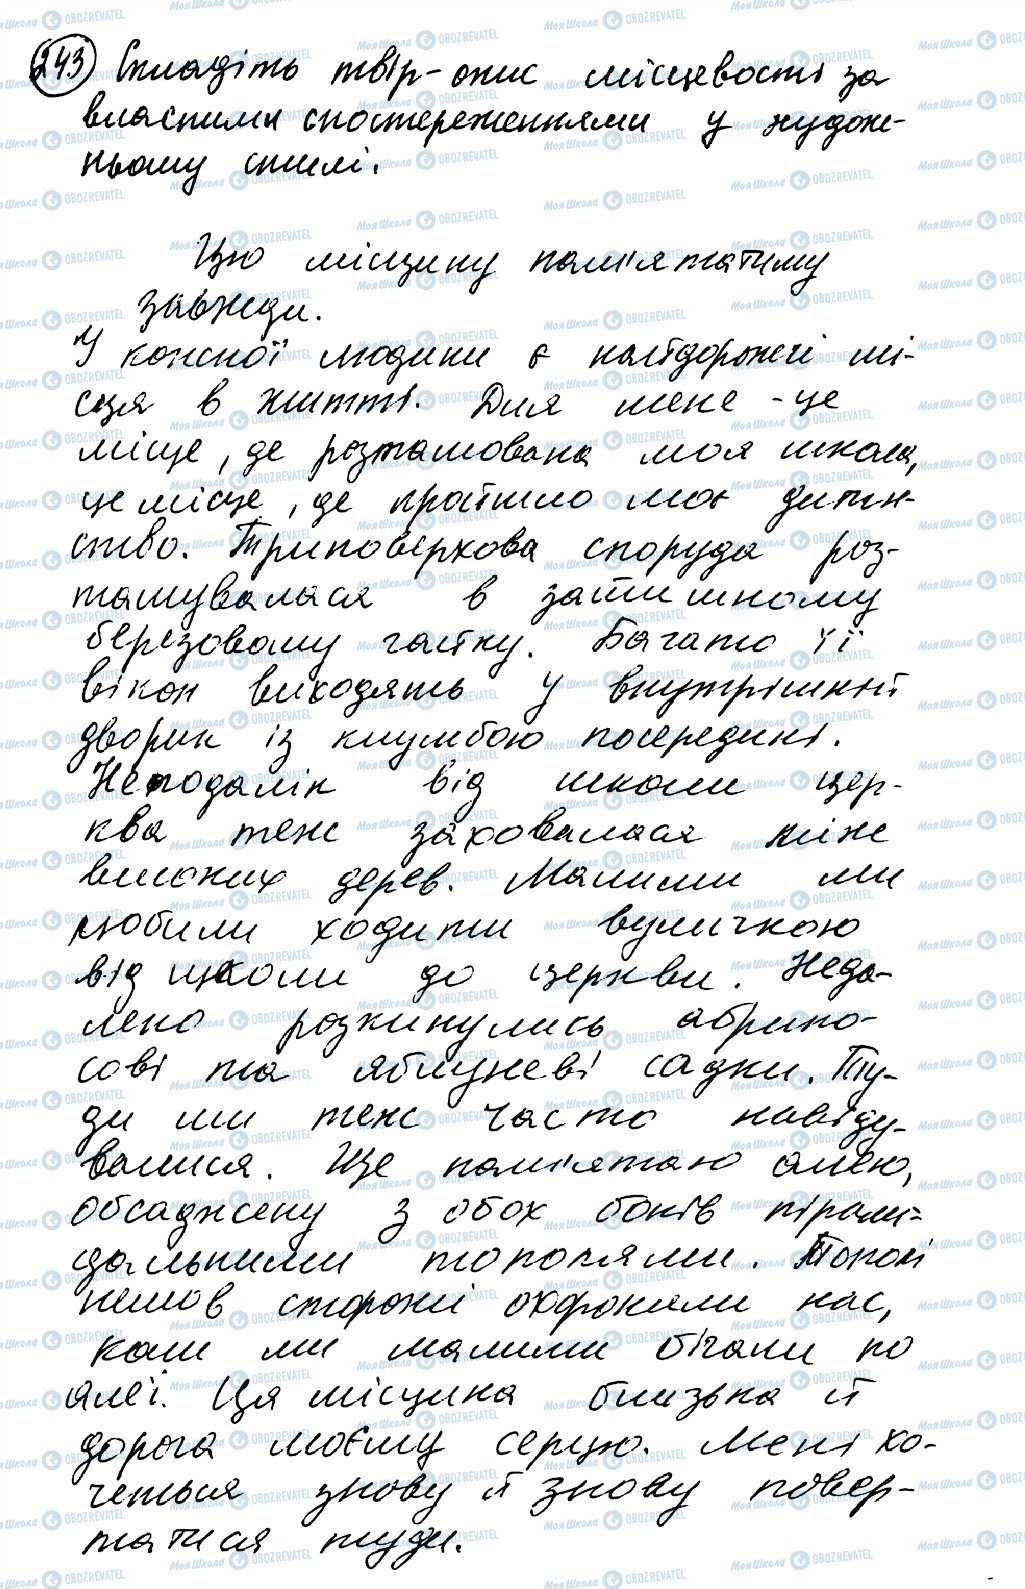 243 Складіть твір-опис місцевості за
власними спостереженнями у худож-
ньому стилі.
Цю місцину пам'ятатиму
завжди.
У кожної людини є найдорожчі мі-
сця в житті. Для мене - це
місце, де розташована моя школа,
це місце, де пройшло моє дитин-
ство. Триповерхова споруда роз-
ташувалася в затишному
березовому гайку. Багато її
вікон виходять у внутрішній
дворик із клумбою посередині.
Неподалік від школи цер-
ква теж заховалася між
високих дерев. Малими ми
любили ходити вуличкою
від школи до церкви. Неда-
леко розкинулись абрико-
сові та яблуневі садки. Ту-
ди ми теж часто навіду-
валися. Ще пам'ятаю алею,
обсаджену з обох боків пірамі-
дальними тополями. Тополі
немов сторожі охороняли нас,
коли ми малими бігали по
алеї. Ця місцина близька й
дорога моєму серцю. Мені хо-
четься знову й знову повер-
татися туди.